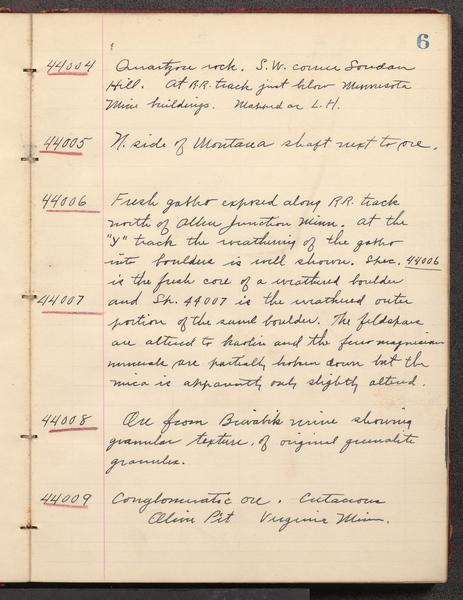 6
44004 Quartzose rock. S.W. corner Soudan
Hill. At R.R. track just below Minnesota
Mine buildings. Marked as L.H.
44005 N. side of Montana shaft next to ore.
44006 Fresh gabbro exposed along R.R. track
north of Allen Junction Minn. At the
"Y" track the weathering of the gabbro
into boulders is well shown. Spec. 44006
is the fresh core of a weathered boulder
44007 and Sp. 44007 is the weathered outer
portion of the same boulder. The feldspars
are altered to kaolin and the ferromagnesian
minerals are partially broken down but the
mica is apparently only slightly altered.
44008 Ore from Biwabik mine showing
granular texture, of original greenalite
granules.
44009 Conglomeratic ore. Cretaceous
Oliver Pit Virginia Minn.